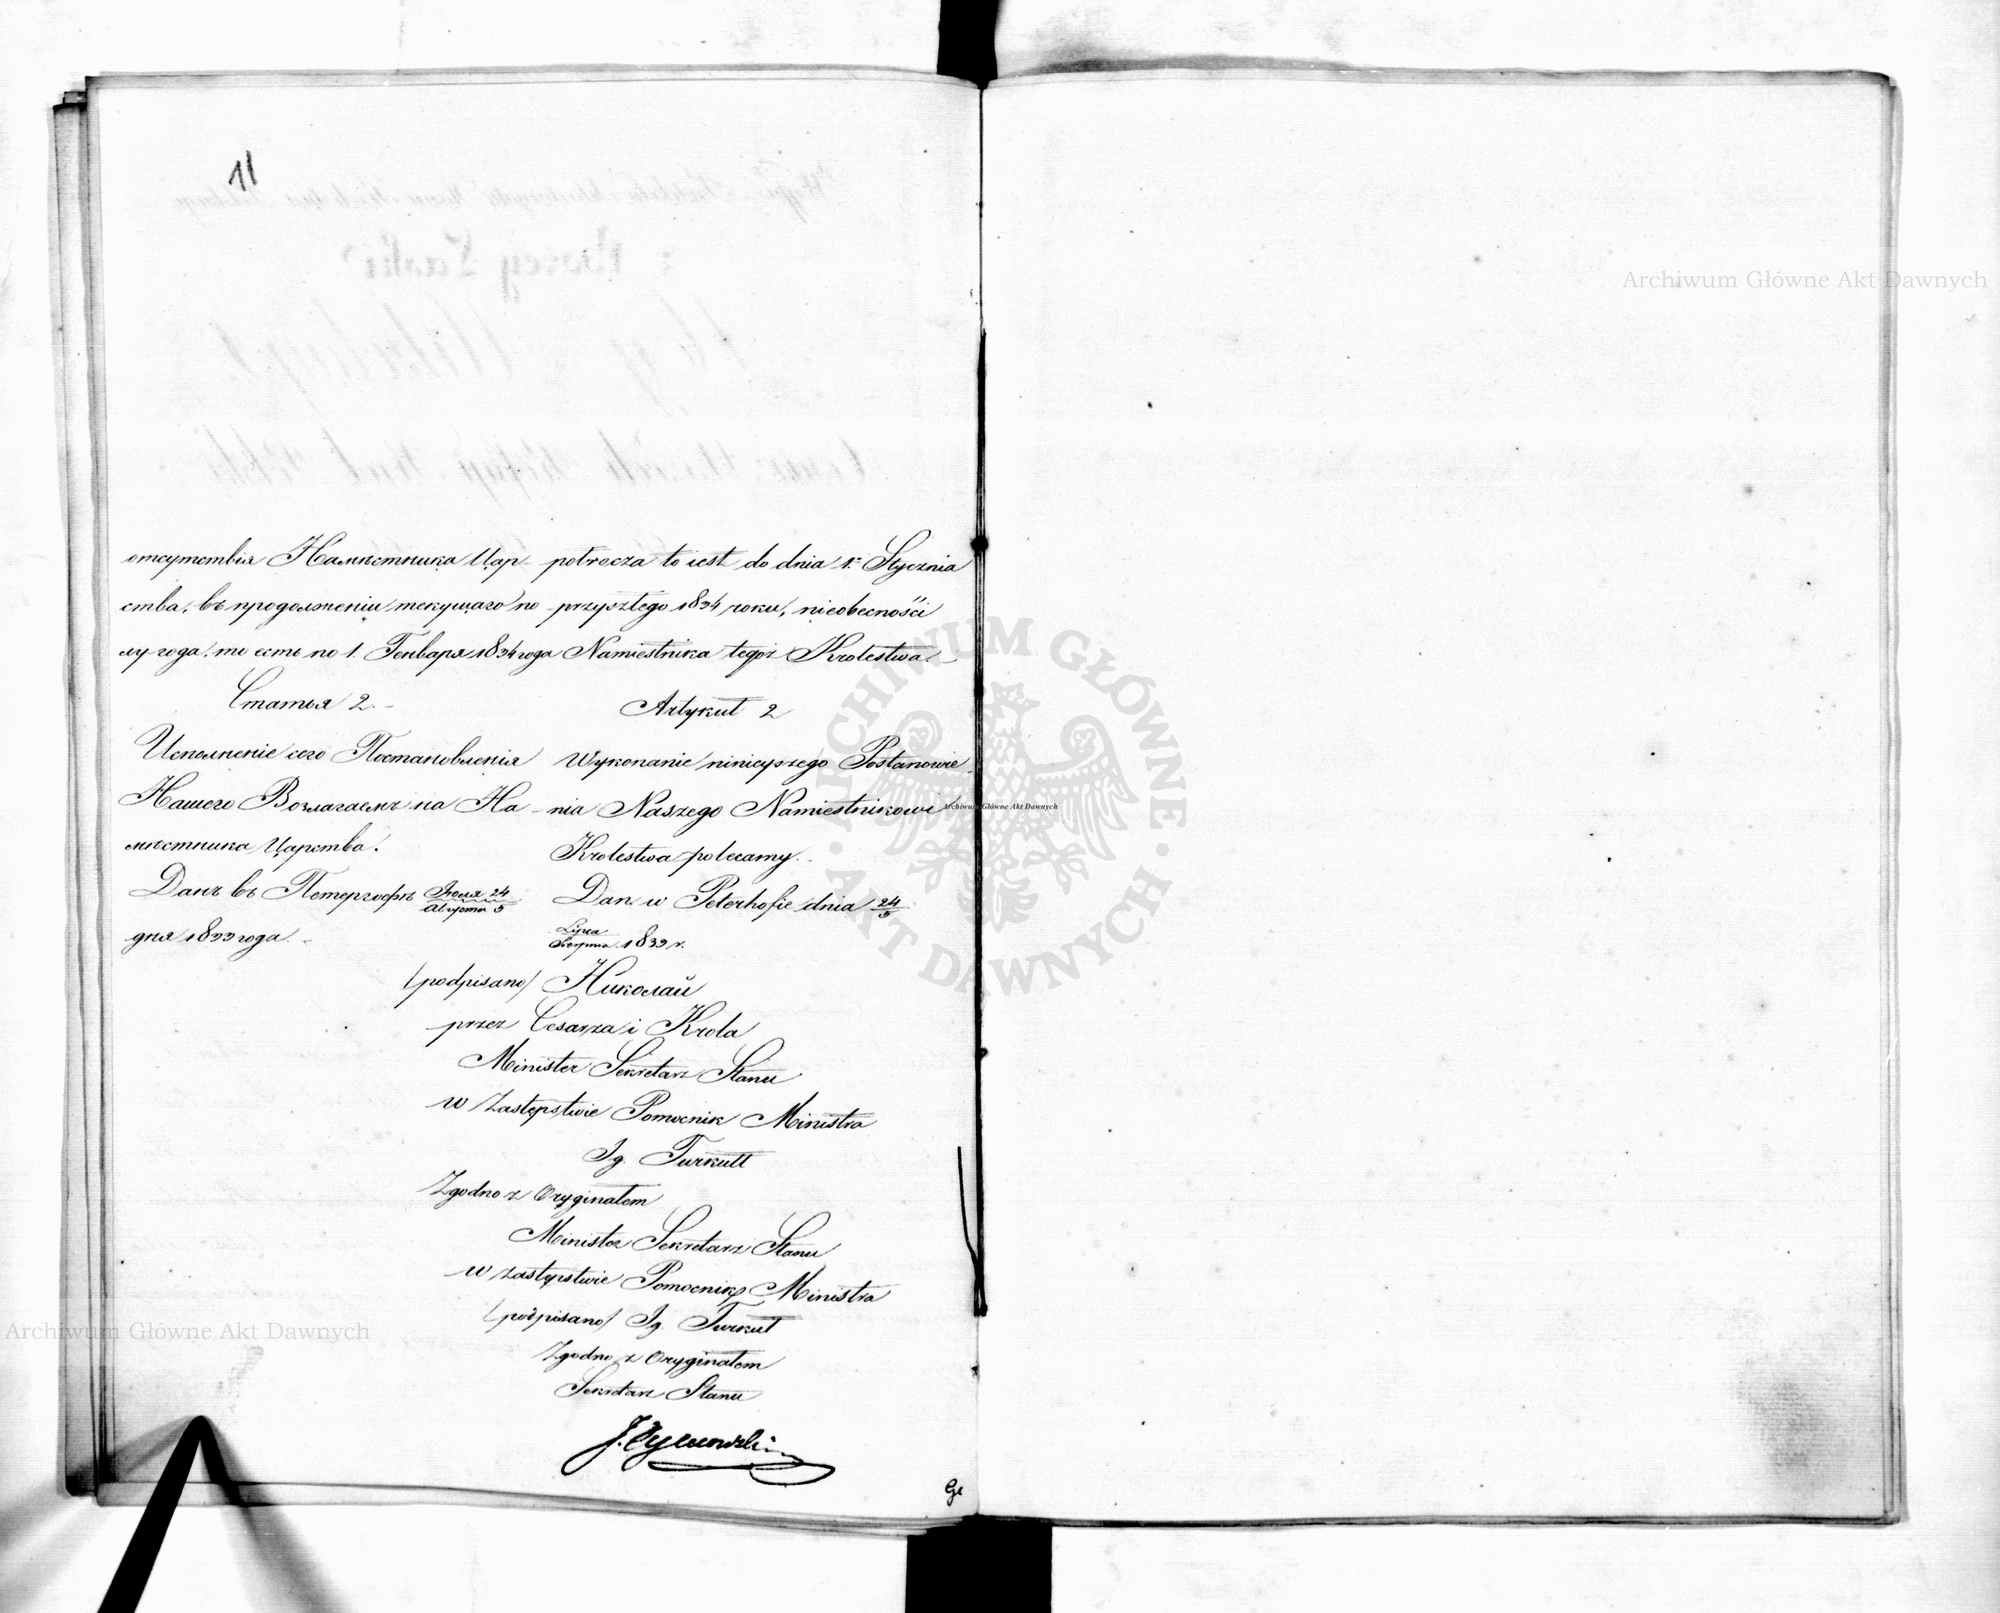 11
отсутствія Намѣстника Цар-
ства, въ продолженіи текущаго по-
лугода, то есть по 1. Генваря 1834 года
Статья 2.
Исполненіе сего Постановленія
Нашего Возлагаемъ на На-
мѣстника Царства.
Данъ въ Петергофѣ Іюля 24
Августа 5
дня 1833 года.
potrocza to iest do dnia 1. Stycznia
przyszłego 1834 roku, nieobecności
Namiestnika tegoż Krolestwa.
Artykuł 2
Wykonanie ninieyszego Postanowie-
nia Naszego Namiestnikowi
Krolestwa polecamy.
Dan w Peterhofie dnia 24/5
Lipca
Sierpnia 1833 r.
/podpisano/ Николай
przez Cesarza i Krola
Minister Sekretarz Stanu
w Zastępstwie Pomocnik Ministra
Ig. Turkułł
Zgodno z Oryginałem
Minister Sekretarz Stanu
w zastępstwie Pomocnik Ministra
/podpisano/ Ig. Turkuł
Zgodno z Oryginałem
Sekretarz Stanu
Archiwum Główne Akt Dawnych
ARCHIWUM GŁÓWNE · AKT DAWNYCH ·
Archiwum Główne Akt Dawnych
Archiwum Główne Akt Dawnych